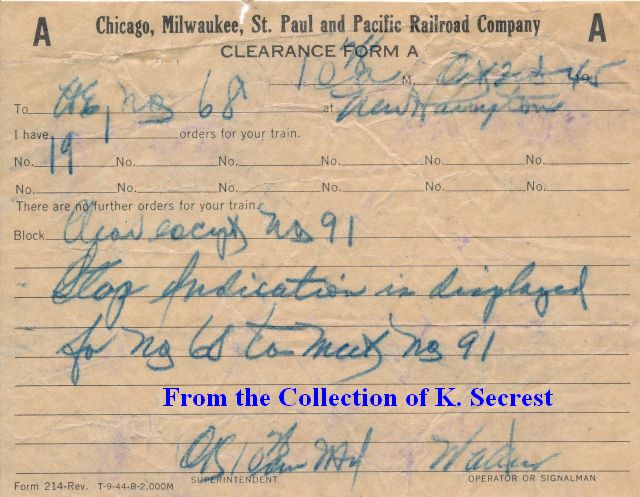 A Chicago, Milwaukee, St. Paul and Pacific Railroad Company A
CLEARANCE FORM A
10 M. 1945
To C&E, No 68 at New Hampton
I have 1 orders for your train.
No. 19 No. No. No. No. No.
No. No. No. No.
There are no further orders for your train.
Block Clear except No 91
Stop Indication is displayed
for No 68 to meet No 91
From the Collection of K. Secrest
OK
SUPERINTENDENT OPERATOR OR SIGNALMAN
Form 214-Rev. T-9-44-B-2,000M